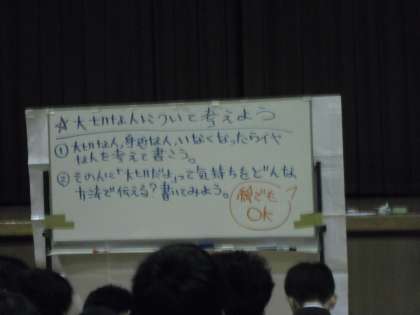 ☆大切な人について考えよう
① 大切な人、身近な人、いなくなったらイヤ
な人を考えて書こう。
② その人に“大切だよ”って気持ちをどんな
方法で伝える?書いてみよう。
何でも
OK